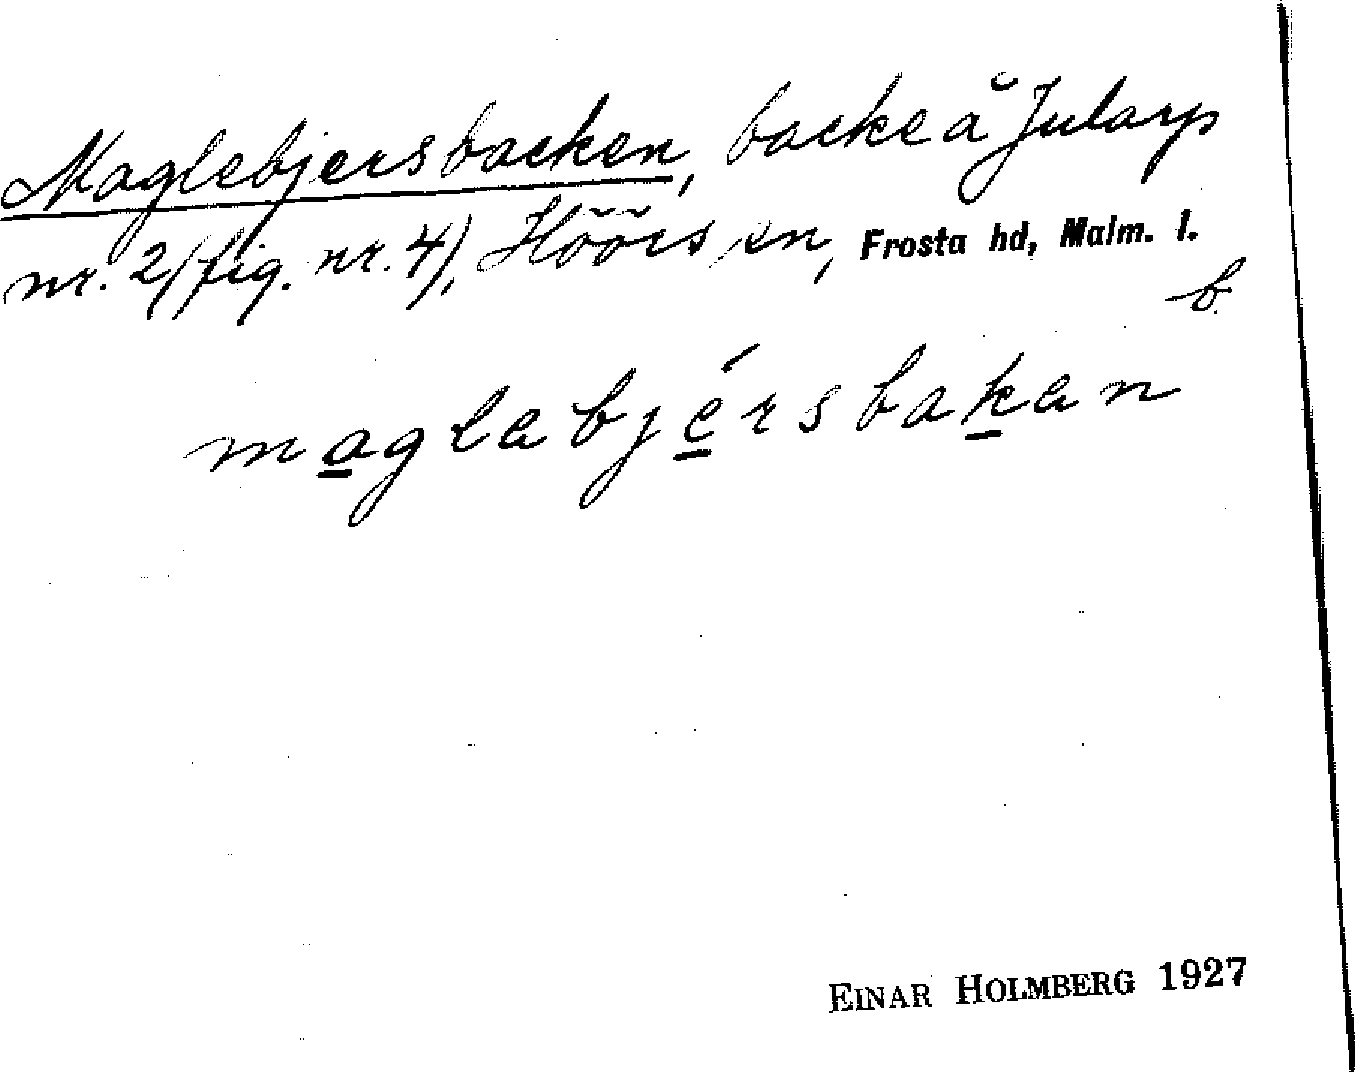 Maglebjersbacken, backe å Jularp
nr. 2 (fig. nr. 4), Höörs sn, Frosta hd, Malm. l.
b.
maglabjérsbakan
EINAR HOLMBERG 1927